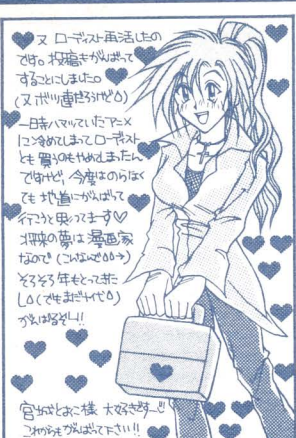 又 ローディスト再活したの
です。投稿もがんばって
することにしました。
(又ボツ連だろうけど△)
一日寺ハマっていたアニメ
に冷めてしまってローディスト
とも買うのもやめてしまったん
ですけど、今度はのらなく
ても地道にがんばって
行こうと思ってます♡
将来の夢は漫画家
なので(こんなんで△△→)
そろそろ年もとってきた
し△(でもまだ十代△)
がんばるぞ!!
大好きですー!!
これからもがんばって下さい!!